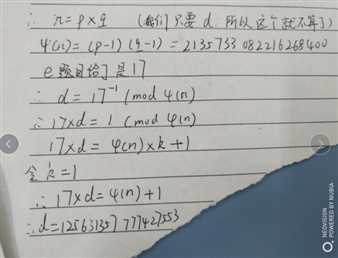 ∴ n=p×q （我们只要d，所以这个就不算了）
φ(n)=(p-1)(q-1)=2135733082216268400
e题目给了是17
∴ d=17⁻¹(mod φ(n)
∴ 17×d=1 (mod φ(n)
17×d=φ(n)×k+1
令k=1
∴ 17×d=φ(n)+1
∴ d=125631357777427553
NEOVISION
POWERED BY NUBIA